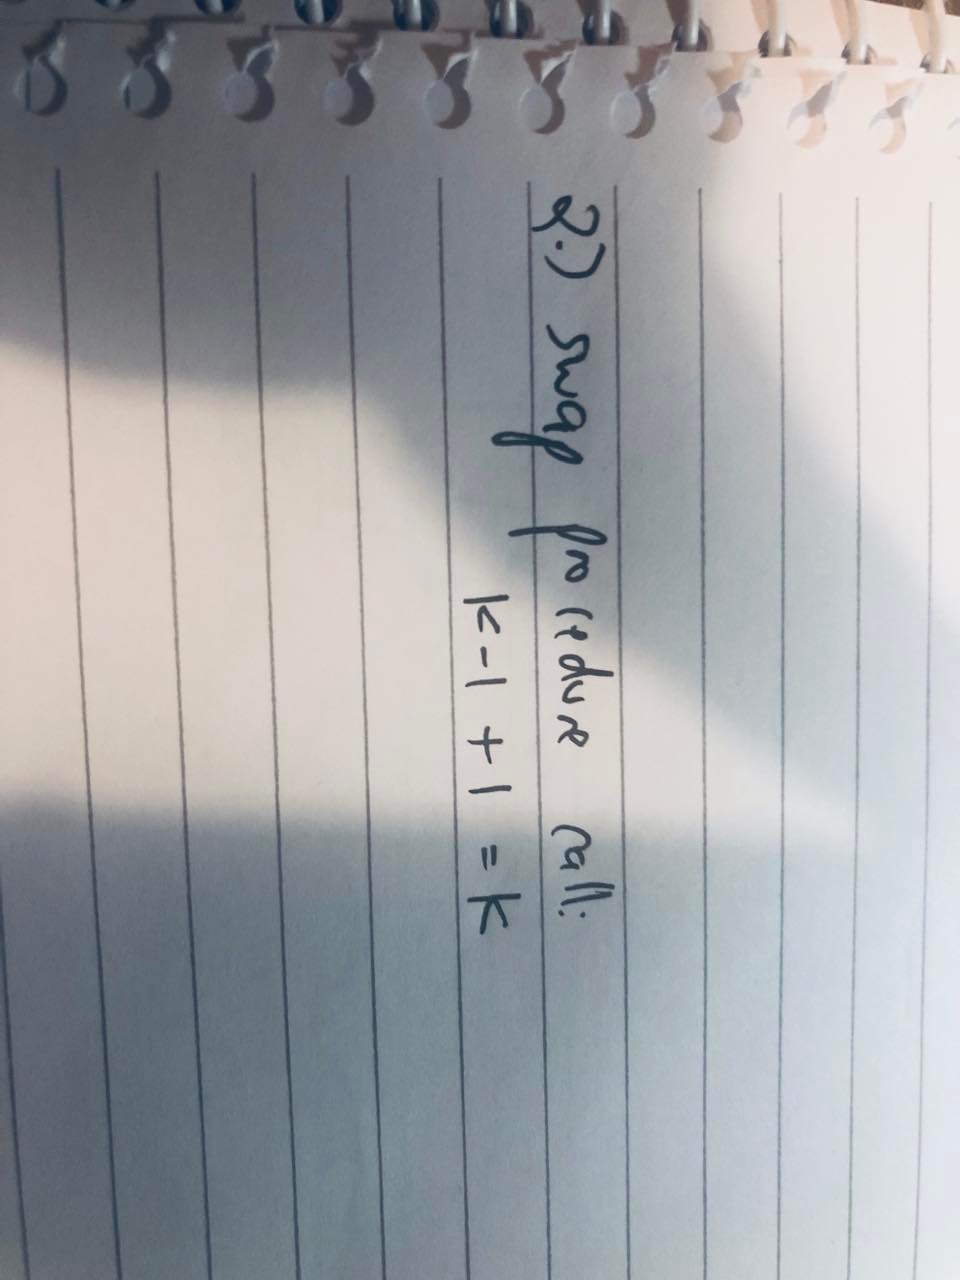 2.) swap procedure call:
k-1 + 1 = k